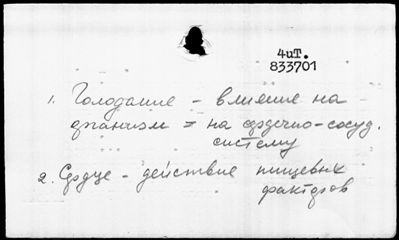 4иТ.
833701
1. Голодание - влияние на
организм = на сердечно-сосуд.
систему
2. Сердце - действие пищевых
факторов